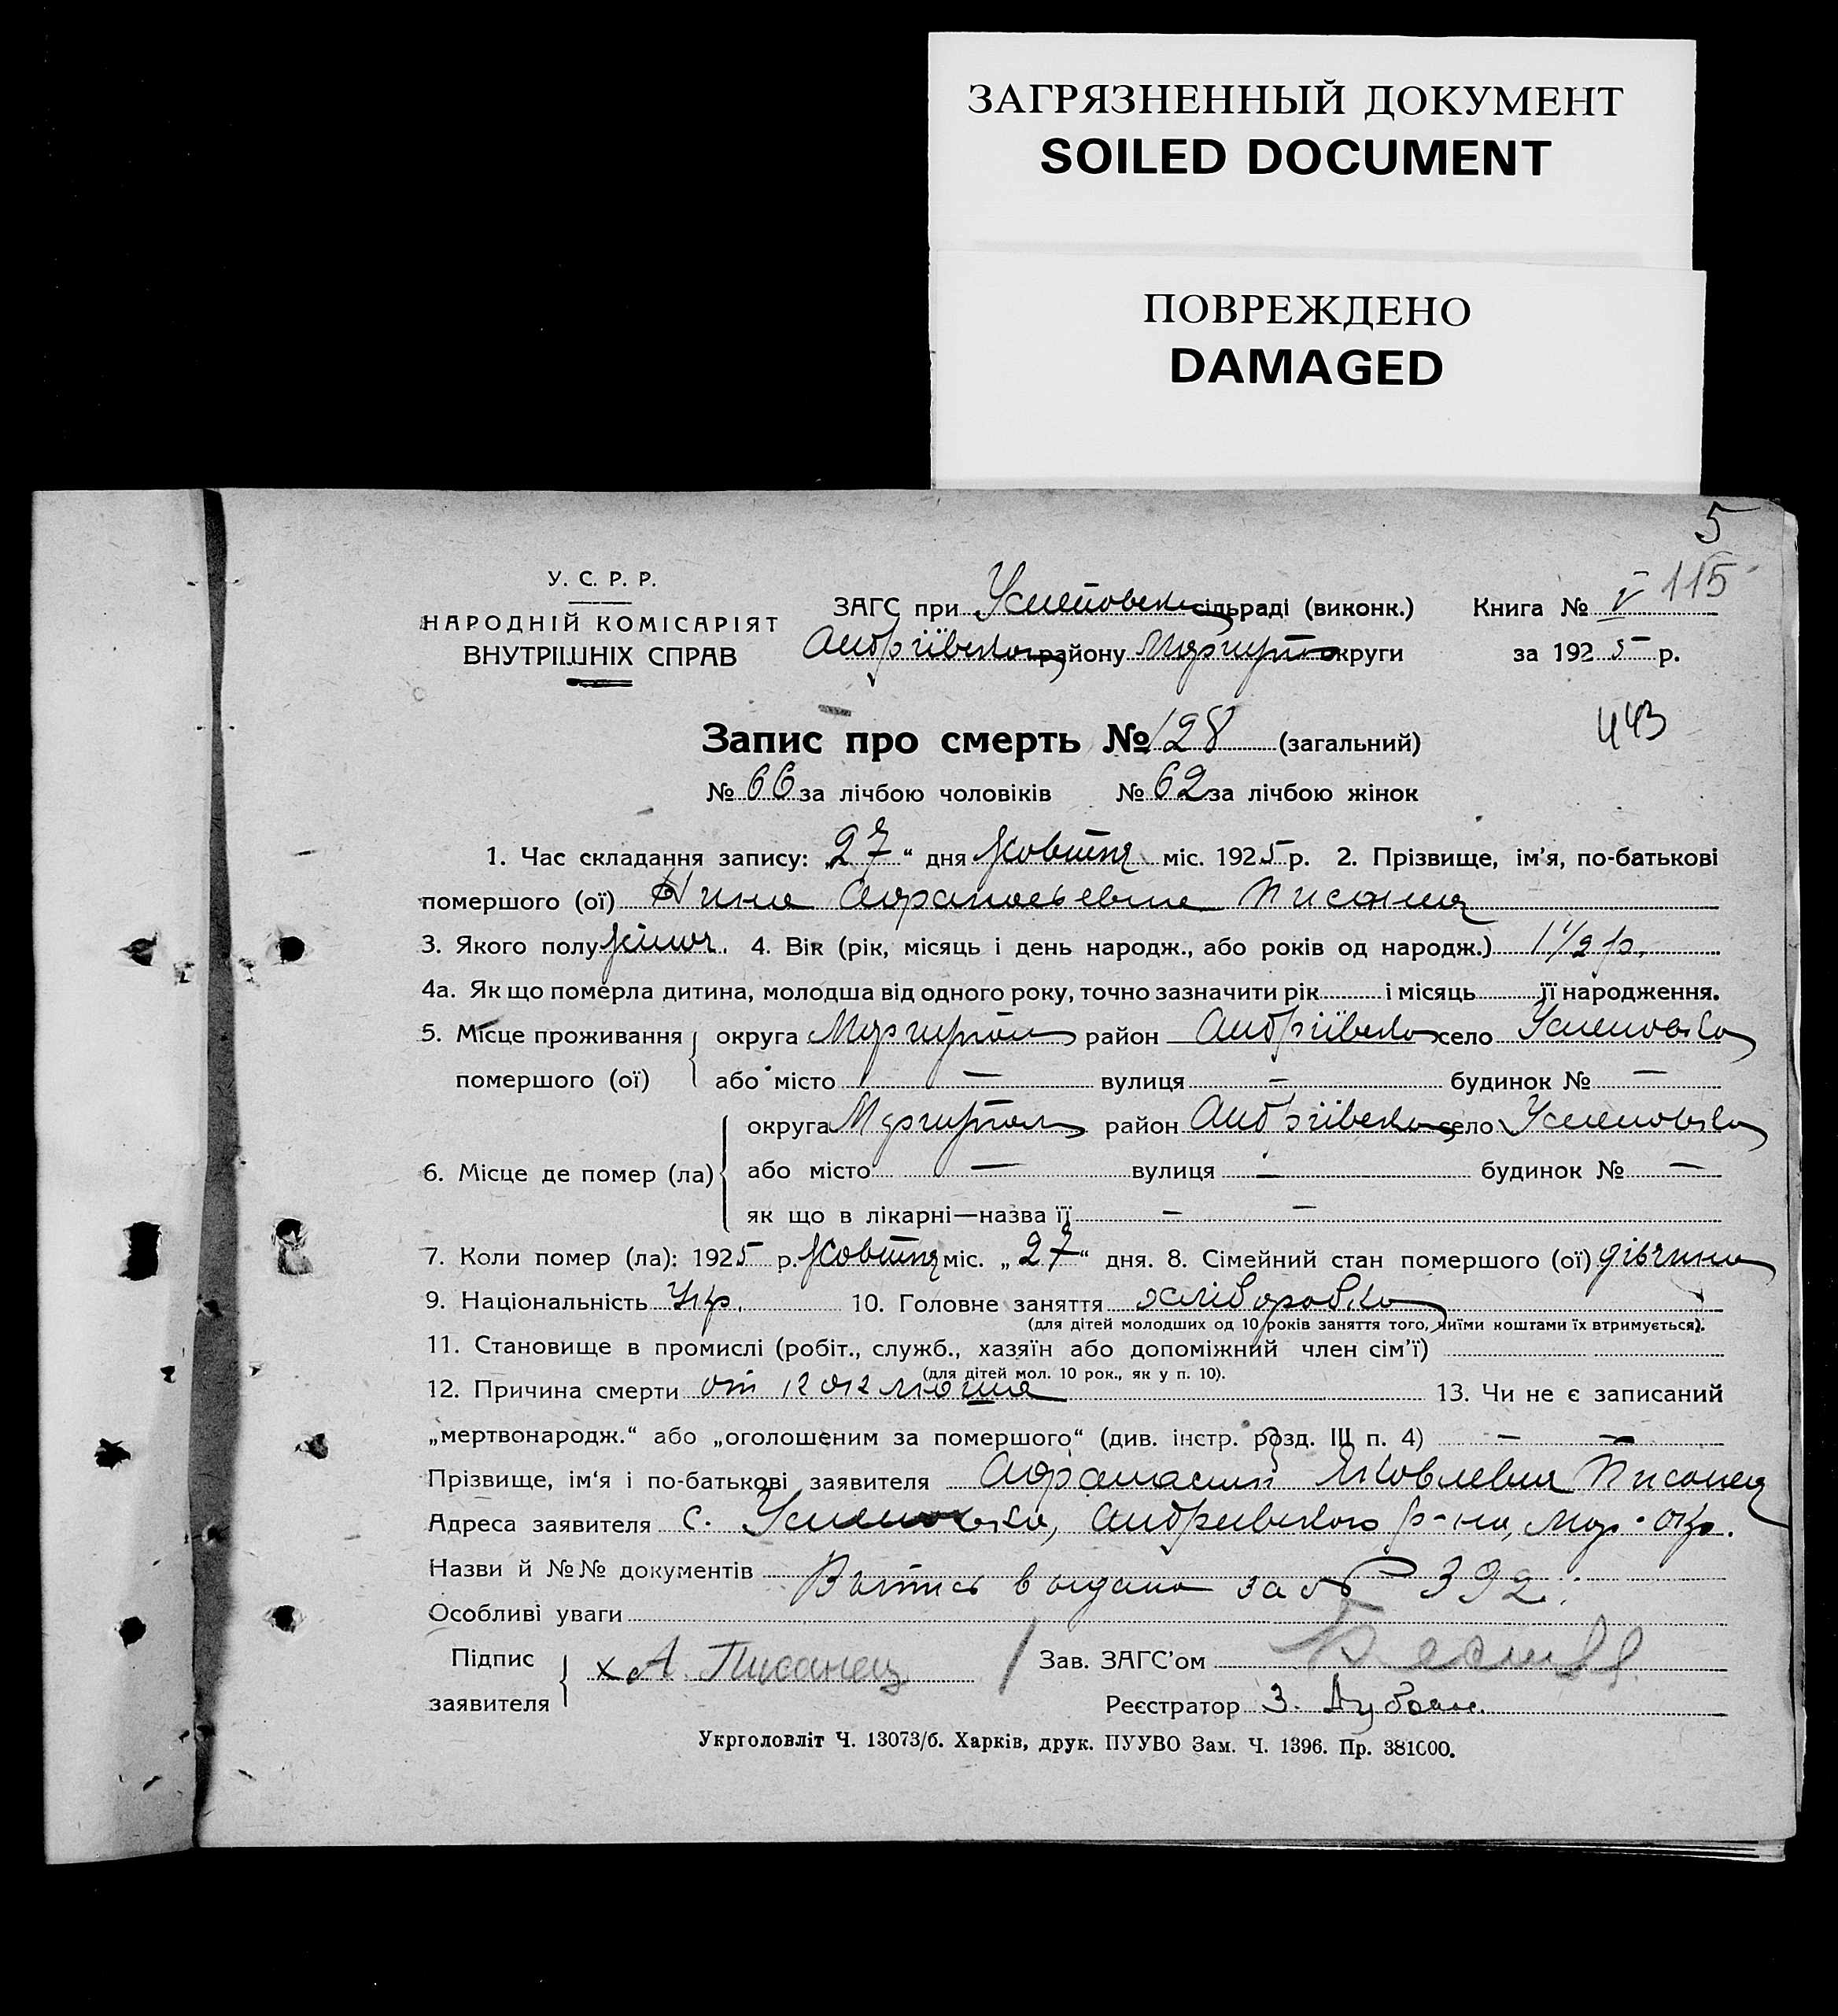 ЗАГРЯЗНЕННЫЙ ДОКУМЕНТ
SOILED DOCUMENT
ПОВРЕЖДЕНО
DAMAGED
5
У. С. Р. Р.
НАРОДНІЙ КОМІСАРІЯТ
ВНУТРІШНІХ СПРАВ
ЗАГС при сільраді (виконк.) Книга № V 115
Андріївского району Маріуп округи за 1925 р.
443
Запис про смерть № 128 (загальний)
№ 66 за лічбою чоловіків № 62 за лічбою жінок
1. Час складання запису: „27“ дня Жовтня міс. 1925 р. 2. Прізвище, ім’я, по-батькові
помершого (ої) Нина Афанасьевна Писанец
3. Якого полу жіноч. 4. Вік (рік, місяць і день народж., або років од народж.) 1 1/2 р.
4а. Як що померла дитина, молодша від одного року, точно зазначити рік і місяць її народження.
5. Місце проживання помершого (ої) округа Маріупол район Андріївско село Успеновка
або місто — вулиця — будинок № —
6. Місце де помер (ла) округа Маріупол район Андріївско село Успеновка
або місто — вулиця — будинок № —
як що в лікарні—назва її — —
7. Коли помер (ла): 1925 р. Жовтня міс. „27“ дня. 8. Сімейний стан помершого (ої) дівчина
9. Національність Укр. 10. Головне заняття хлібороб
(для дітей молодших од 10 років заняття того, чиїми коштами їх втримується).
11. Становище в промислі (робіт., служб., хазяїн або допоміжний член сім’ї)
(для дітей мол. 10 рок., як у п. 10).
12. Причина смерти от коклюша 13. Чи не є записаний
„мертвонародж.“ або „оголошеним за помершого“ (див. інстр. розд. III п. 4) — —
Прізвище, ім‘я і по-батькові заявителя Афанасий Яковлевич Писанец
Адреса заявителя с. Успеновка, Андреевского р-на, Мар. окр.
Назви й №№ документів Выпись выдана за № 392.
Особливі уваги
Підпис заявителя х А. Писанец Зав. ЗАГС’ом
Реєстратор З.
Укрголовліт Ч. 13073/б. Харків, друк. ПУУВО Зам. Ч. 1396. Пр. 381000.